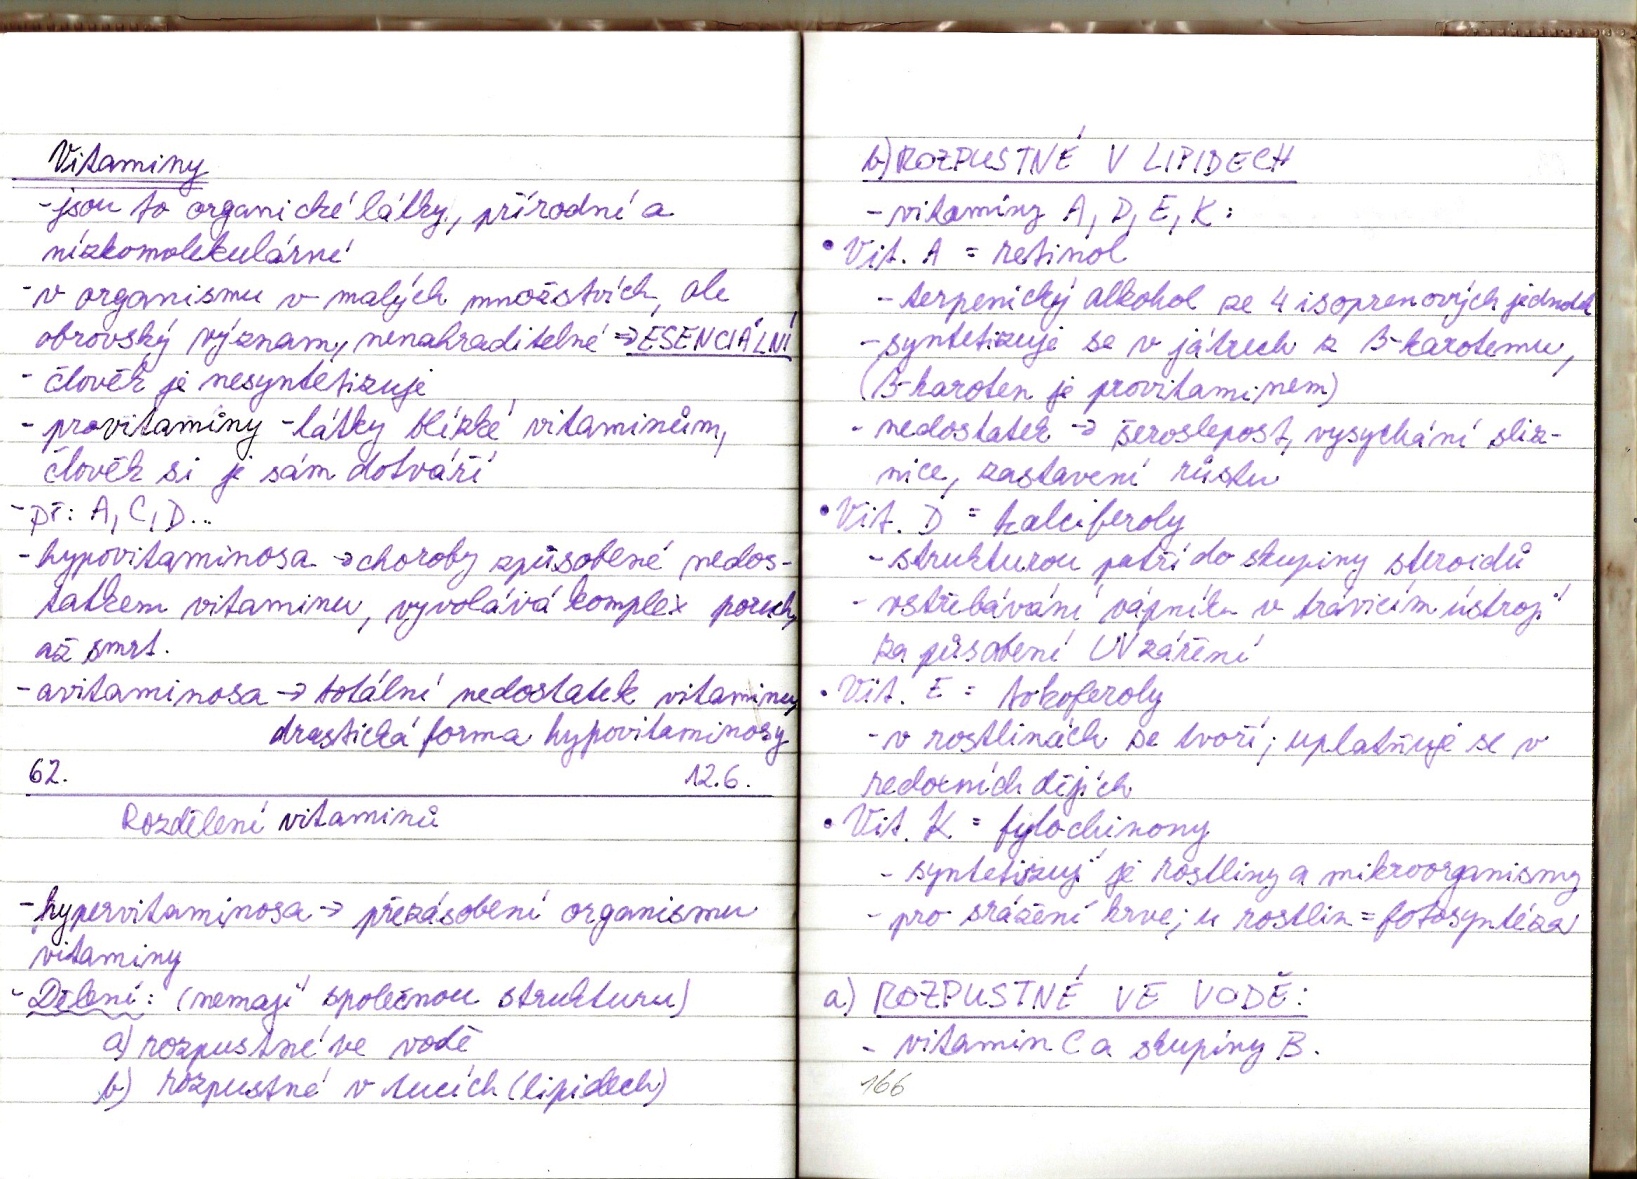 Vitaminy
- jsou to organické látky, přírodní a
nízkomolekulární
- v organismu v malých množstvích, ale
obrovský význam, nenahraditelné ⇒ ESENCIÁLNÍ
- člověk je nesyntetizuje
- provitamíny - látky blízké vitaminům,
člověk si je sám dotváří
- př: A, C, D...
- hypovitaminosa → choroby způsobené nedos-
tatkem vitaminu, vyvolává komplex poruch,
až smrt.
- avitaminosa → totální nedostatek vitaminu,
drastická forma hypovitaminosy
62. 12.6.
Rozdělení vitaminů
- hypervitaminosa → přezásobení organismu
vitaminy
- Dělení: (nemají společnou strukturu)
a) rozpustné ve vodě
b) rozpustné v tucích (lipidech)
b) ROZPUSTNÉ V LIPIDECH
- vitamíny A, D, E, K:
• Vit. A = retinol
- terpenický alkohol ze 4 isoprenových jednotek
- syntetizuje se v játrech z β-karotenu,
(β-karoten je provitaminem)
- nedostatek → šeroslepost, vysychání sliz-
nice, zastavení růstu
• Vit. D = kalciferoly
- strukturou patří do skupiny steroidů
- vstřebávání vápníku v trávicím ústrojí
za působení UV záření
• Vit. E = tokoferoly
- v rostlinách se tvoří; uplatňuje se v
redoxních dějích
• Vit. K = fylochinony
- syntetizují je rostliny a mikroorganismy
- pro srážení krve; u rostlin = fotosyntéza
a) ROZPUSTNÉ VE VODĚ:
- vitamin C a skupiny B.
166